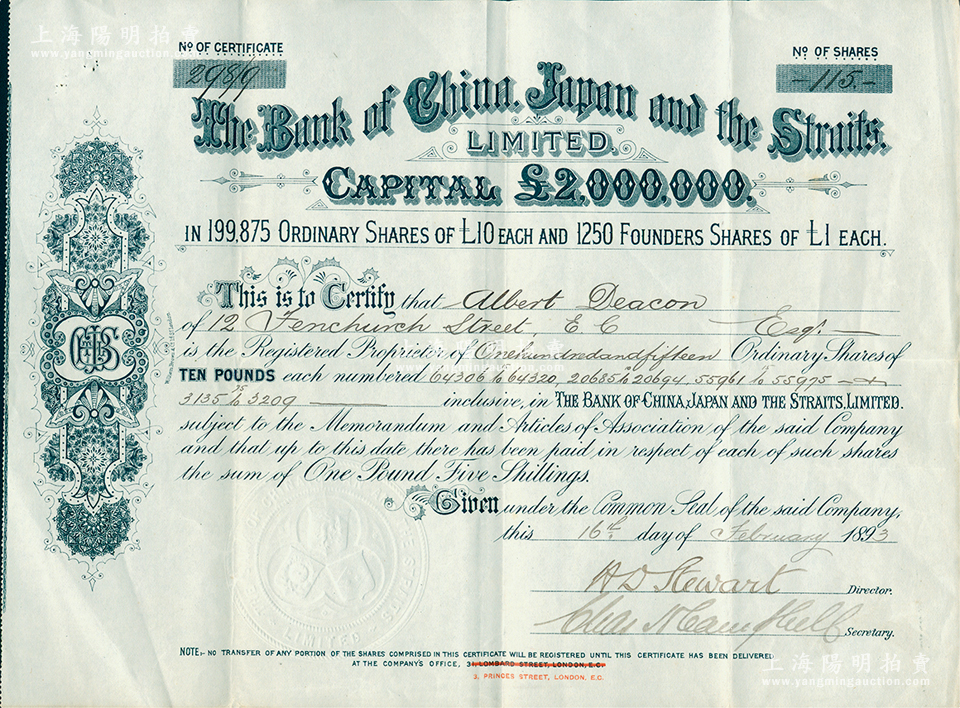 上海陽明拍賣
www.yangmingauction.com
No OF CERTIFICATE
No OF SHARES
-115.-
The Bank of China, Japan and the Straits.
LIMITED.
CAPITAL £2,000,000.
IN 199,875 ORDINARY SHARES OF £10 EACH AND 1250 FOUNDERS SHARES OF £1 EACH.
This is to Certify that Albert Deacon
of 12 Fenchurch Street, E C Esqr.
is the Registered Proprietor of One hundred and fifteen Ordinary Shares of
TEN POUNDS each numbered 64306 to 64320, 20685 to 20694, 55961 to 55975
3135 to 3209 inclusive, in THE BANK OF CHINA, JAPAN AND THE STRAITS, LIMITED.
subject to the Memorandum and Articles of Association of the said Company
and that up to this date there has been paid in respect of each of such shares
the sum of One Pound Five Shillings.
Given under the Common Seal of the said Company,
this 16th day of February 1893
A D Stewart Director.
Chas N Campbell Secretary.
LIMITED
NOTE,- NO TRANSFER OF ANY PORTION OF THE SHARES COMPRISED IN THIS CERTIFICATE WILL BE REGISTERED UNTIL THIS CERTIFICATE HAS BEEN DELIVERED
AT THE COMPANY'S OFFICE, 31, LOMBARD STREET, LONDON, E.C.
3, PRINCES STREET, LONDON, E.C.
上海陽明拍賣
www.yangmingauction.com